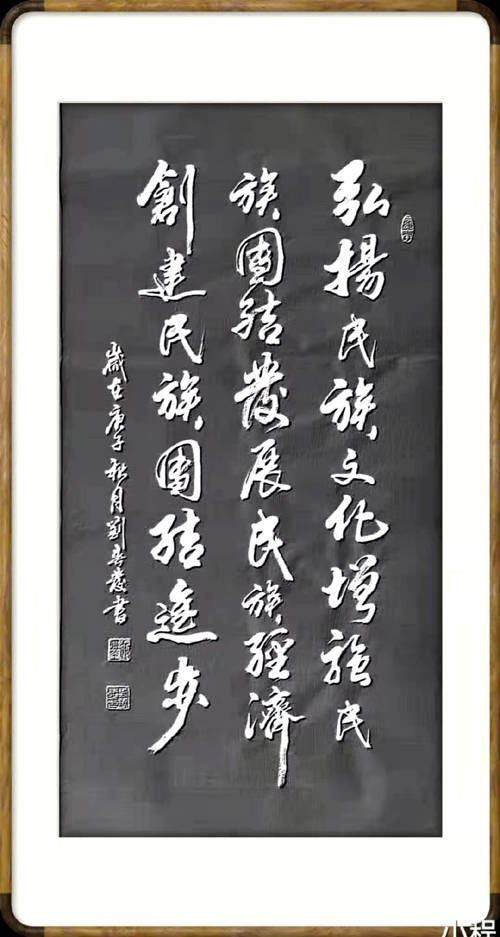 弘揚民族文化增強民
族團結發展民族經濟
創建民族團結進步
歲在庚子秋月劉發書
小程